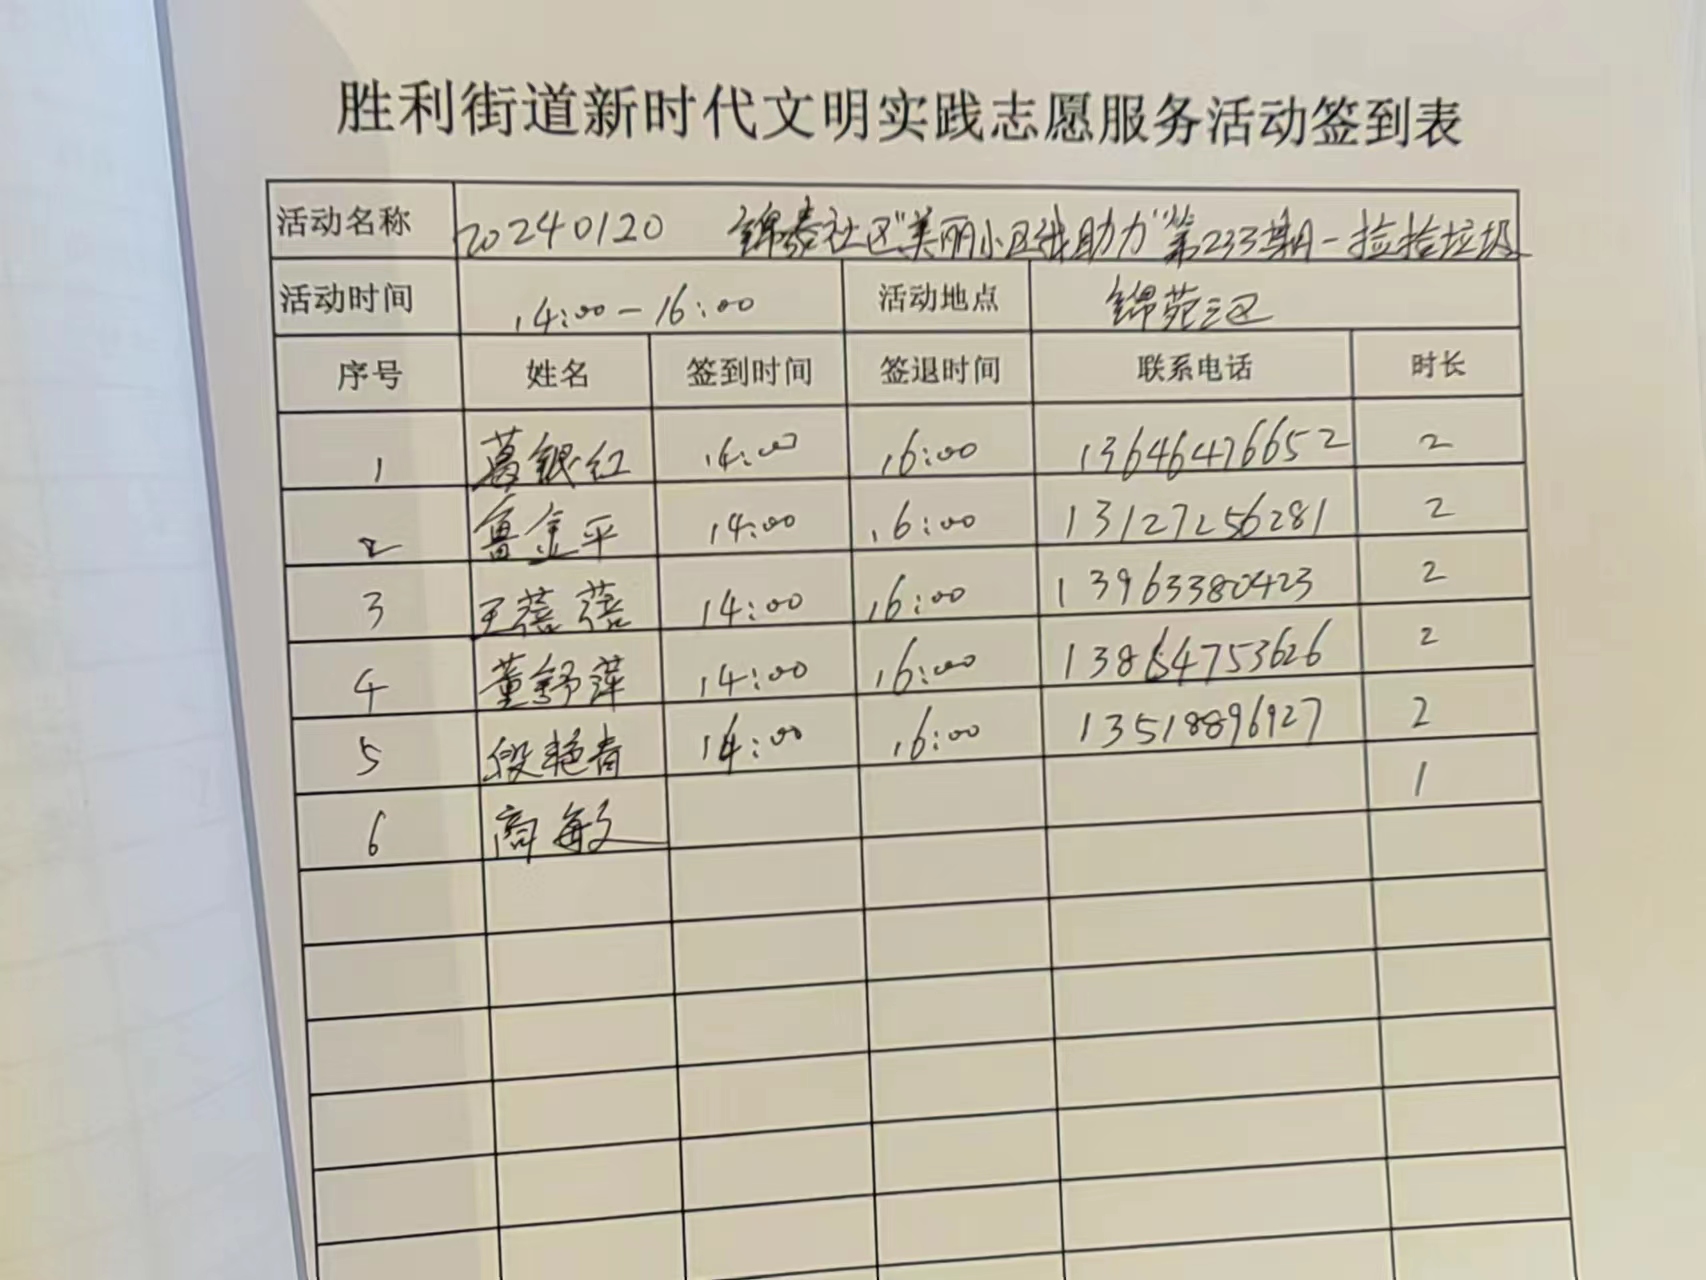 胜利街道新时代文明实践志愿服务活动签到表
活动名称 20240120 锦泰社区"美丽小区我助力"第233期-捡捡垃圾
活动时间 14:00-16:00 活动地点 锦苑三区
序号 姓名 签到时间 签退时间 联系电话 时长
1 葛银红 14:00 16:00 13646476652 2
2 鲁金平 14:00 16:00 13127256281 2
3 王蓓蓓 14:00 16:00 13963380423 2
4 董舒萍 14:00 16:00 13864753626 2
5 段艳春 14:00 16:00 13518896927 2
6 商敏 1